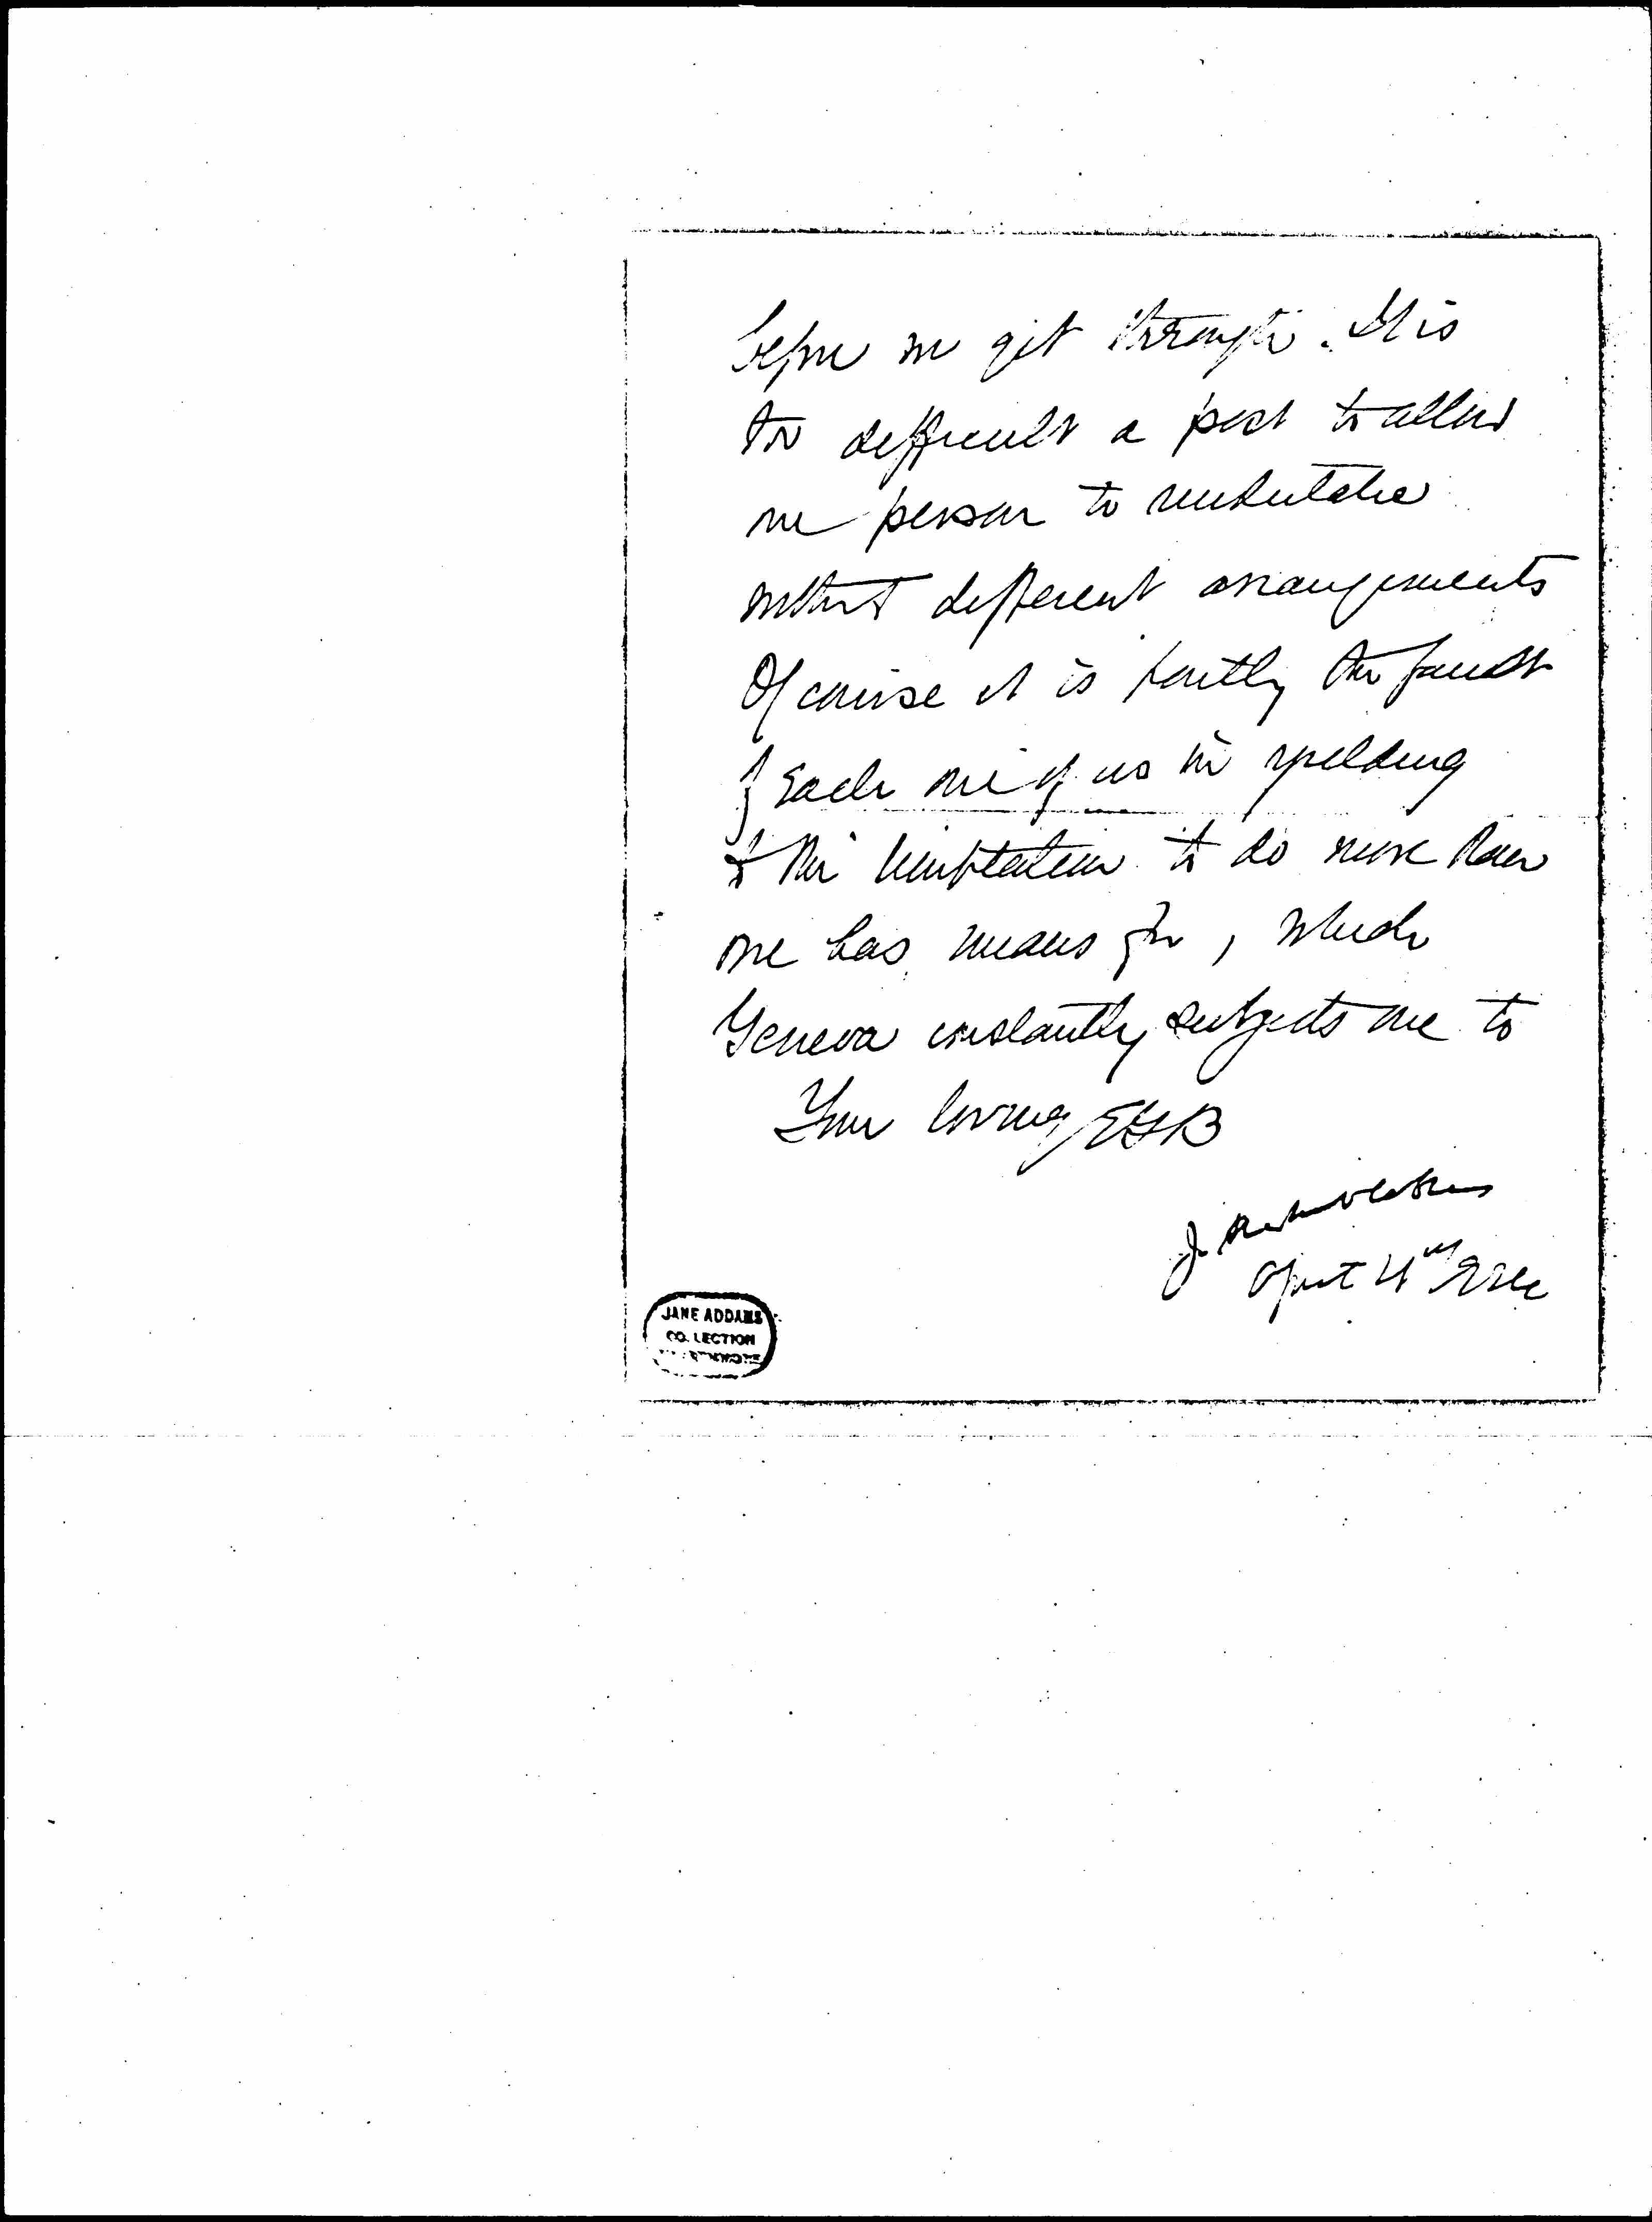 before we get through. It is
too difficult a post to allow
one person to undertake
without different arrangements
Of course it is partly the fault
of each one of us in yielding
to the temptation to do more than
one has means for, which
Geneva constantly subjects one to
Your loving EGB
JANE ADDAMS
COLLECTION